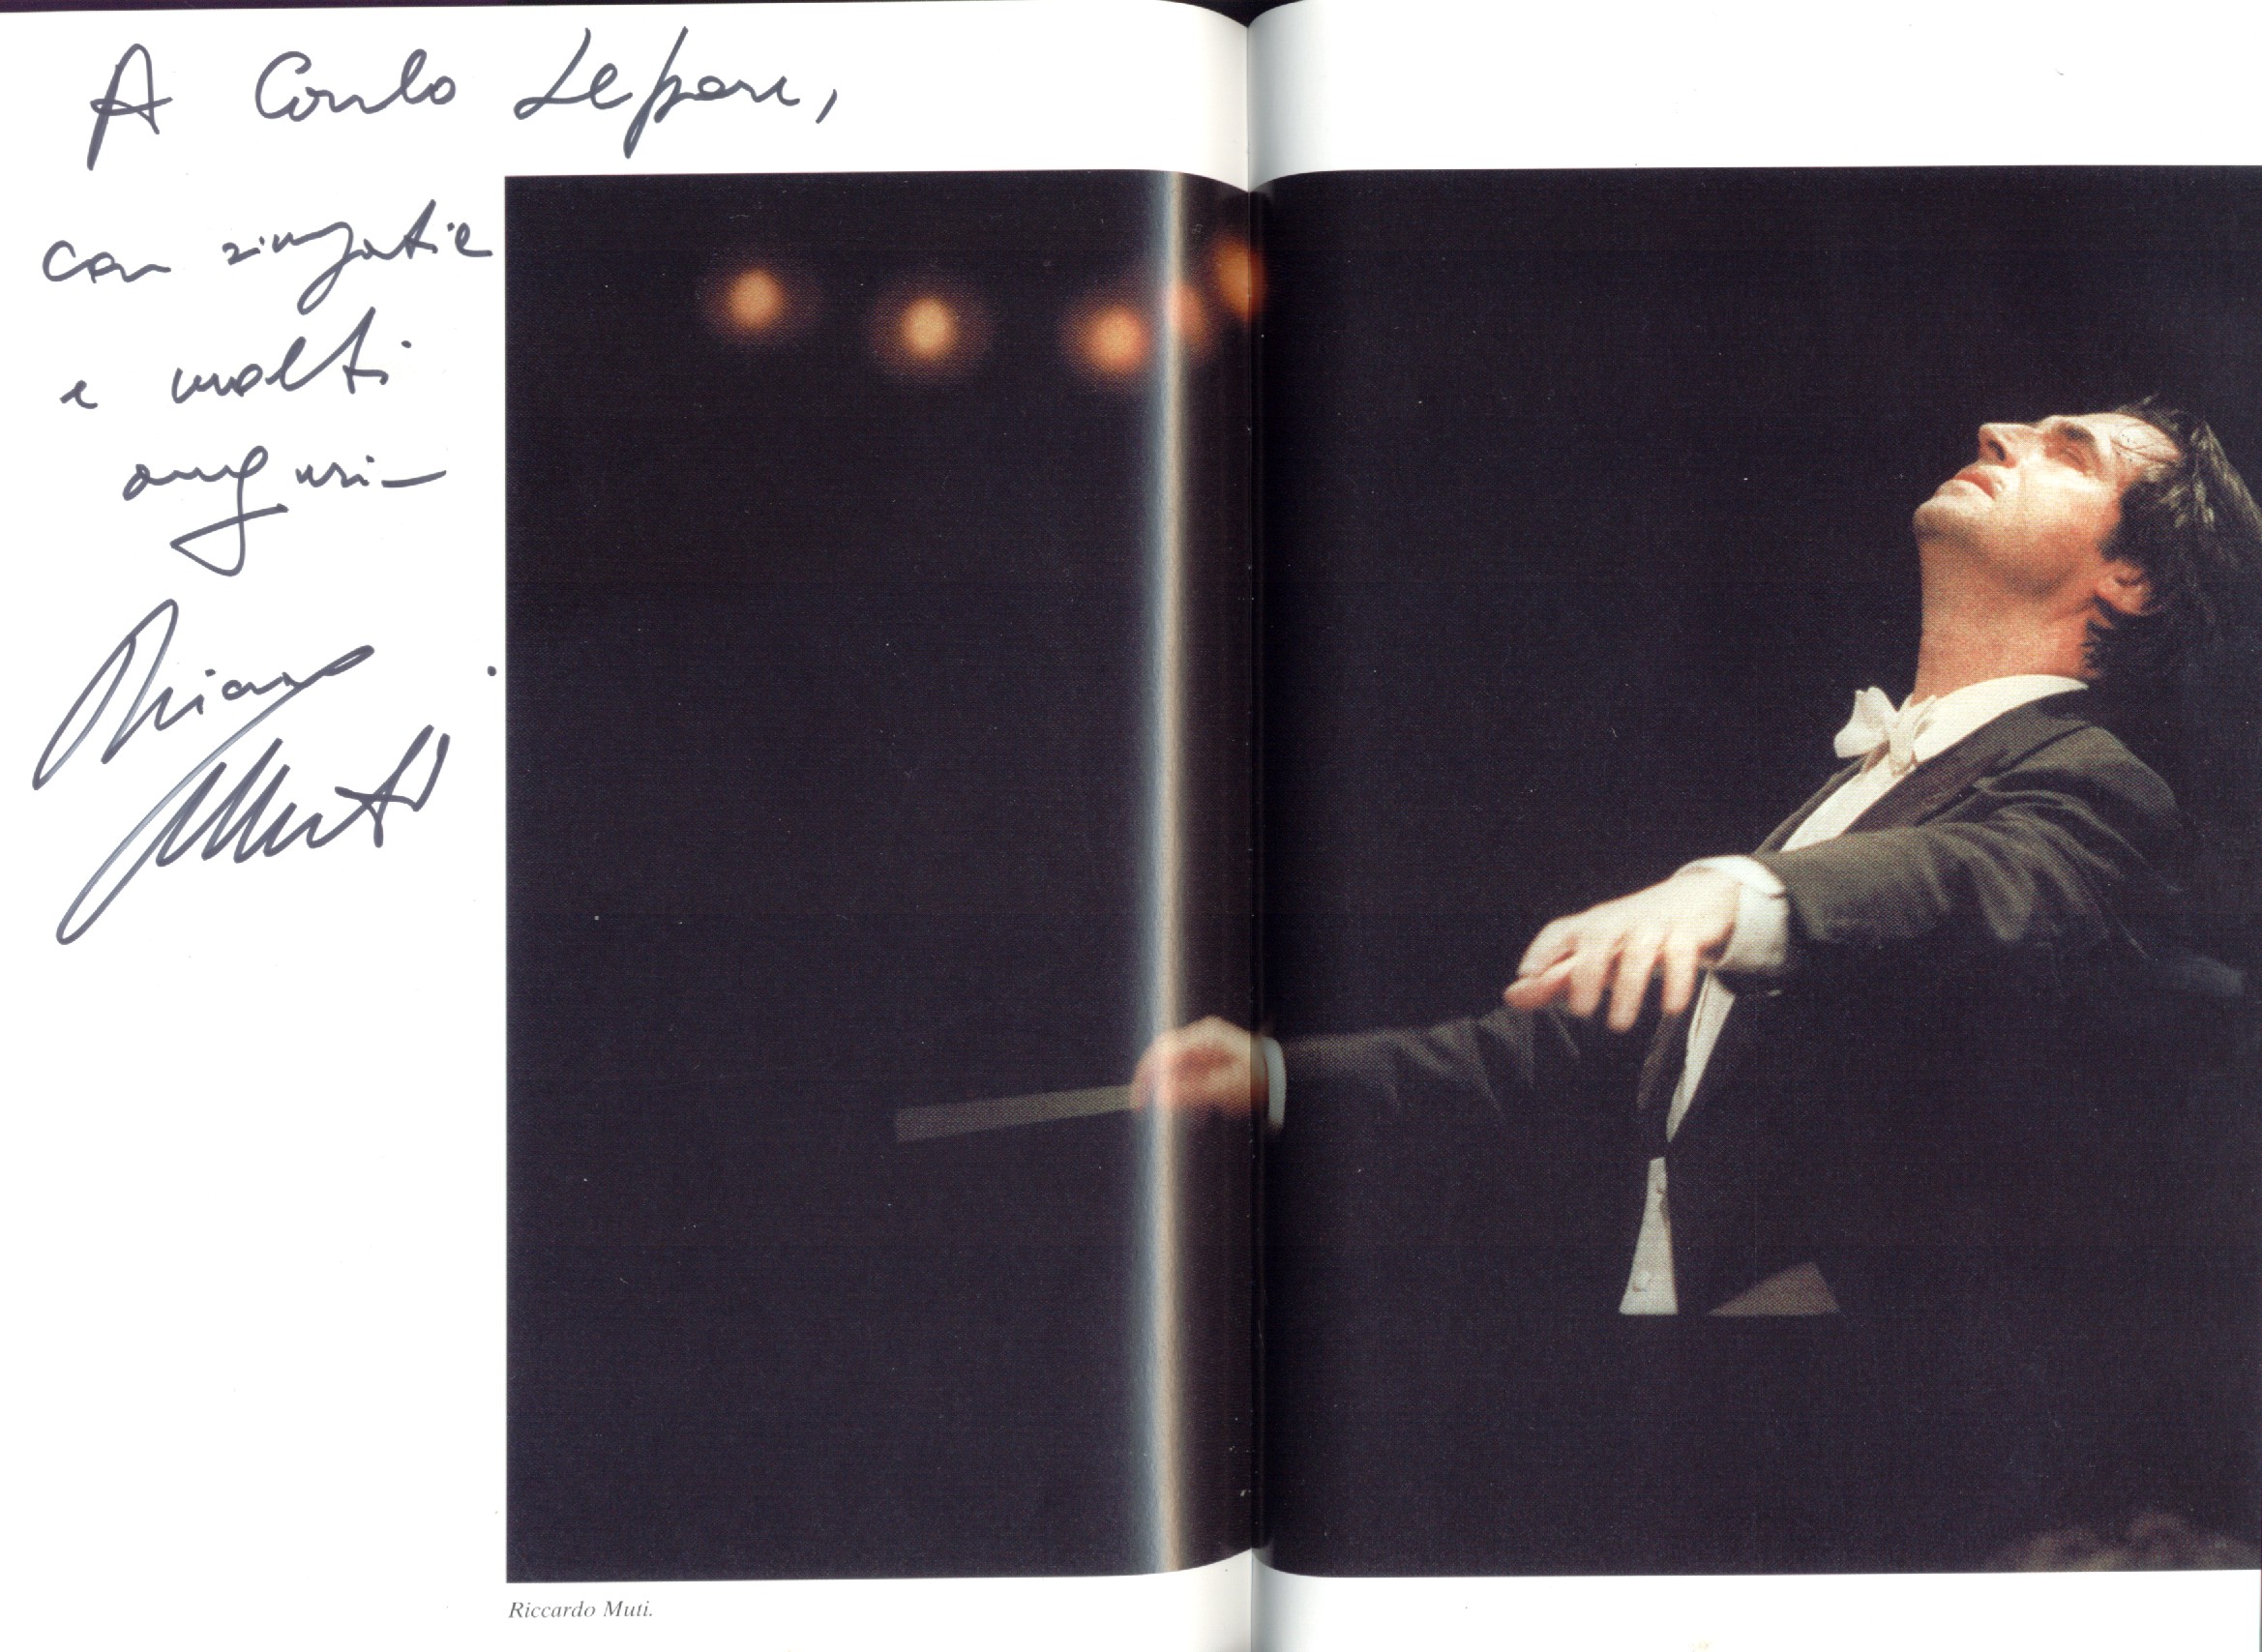 A Carlo Lepore,
con simpatia
e molti
auguri
Riccardo
Muti
Riccardo Muti.